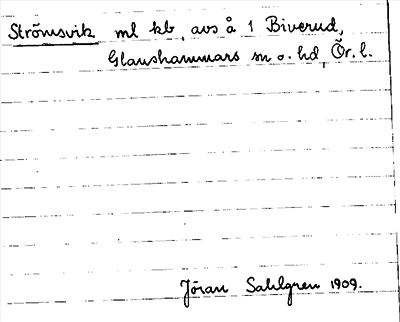 Strömsvik ml kb, avs å 1 Biverud,
Glanshammars sn o. hd, Ör. l.
Jöran Sahlgren 1909.